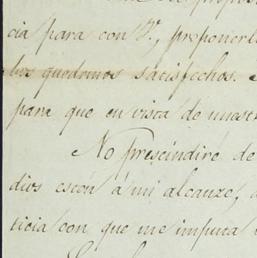 cia para con V., proponerl
los quedemos satisfechos.
para que en vista de nuestr
No prescindiré de
dios estén á mi alcanze,
ticia con que me imputa